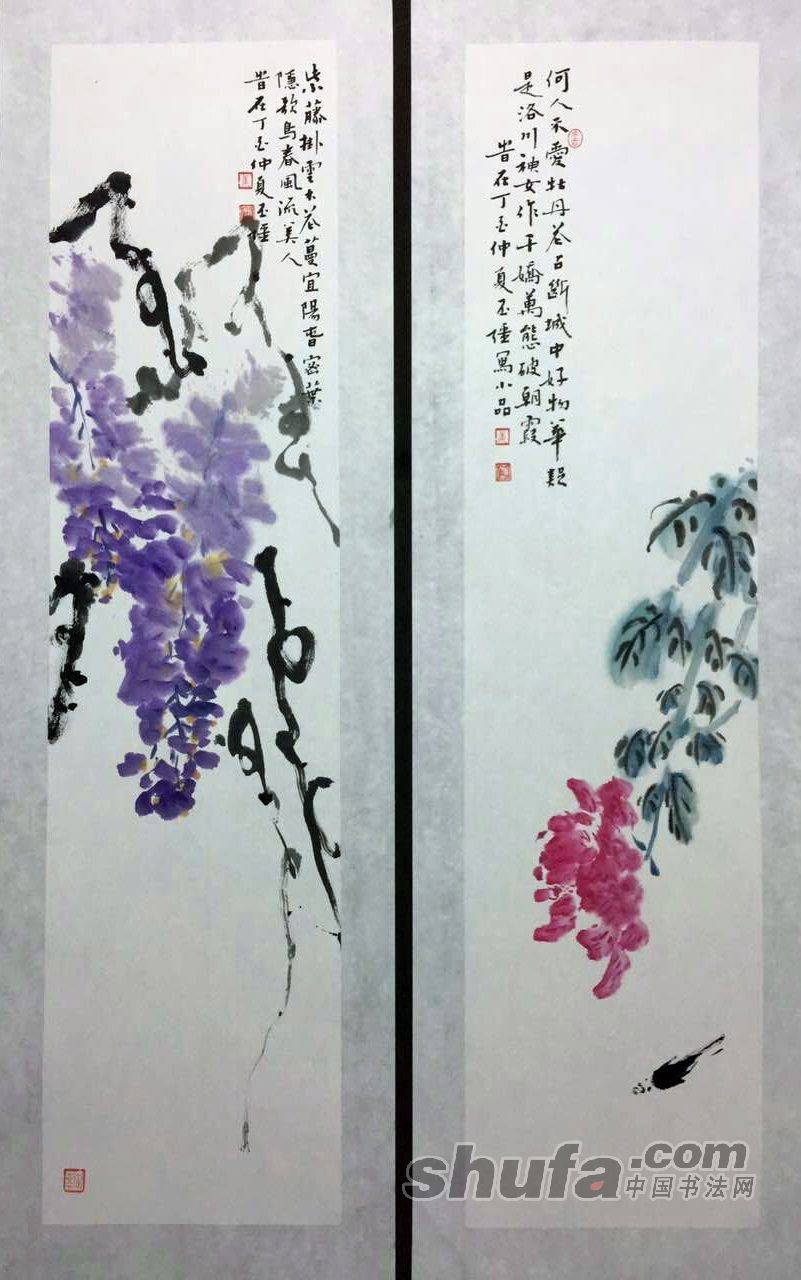 何人不愛牡丹花占斷城中好物華疑
是洛川神女作千嬌萬態破朝霞
時在丁酉仲夏
寫小品
紫藤掛雲木花蔓宜陽春密葉
隱歌鳥春風流美人
時在丁酉仲夏
shufa.com
中国书法网